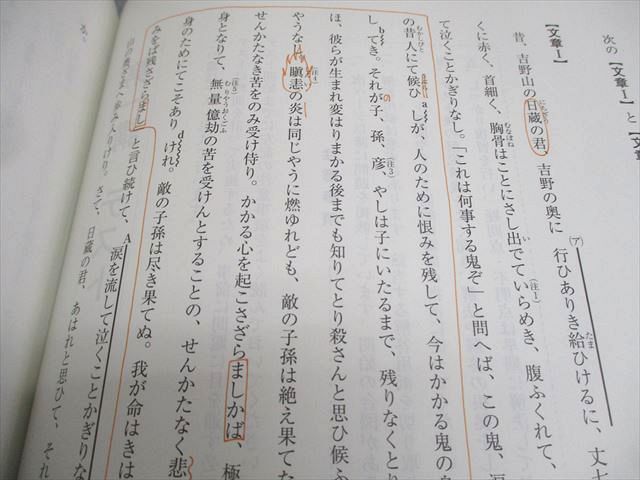 次の【文章Ⅰ】と【文
【文章Ⅰ】
昔、吉野山の日蔵の君、吉野の奥に(ア)行ひありき給ひけるに、丈七
くに赤く、首細く、胸骨はことにさし出でていらめき、腹ふくれて、
て泣くことかぎりなし。「これは何事する鬼ぞ」と問へば、この鬼、
の昔人にて候ひaしが、人のために恨みを残して、今はかかる鬼の身
しbてき。それが子、孫、彦、やしは子にいたるまで、残りなくと
ほ、彼らが生まれ変はりまかる後までも知りてとり殺さんと思ひ候ふ
やうなし。瞋恚の炎は同じやうに燃ゆれども、敵の子孫は絶え果てた
せんかたなき苦をのみ受け侍り。かかる心を起こさざらましかば、極
身となりて、無量億劫の苦を受けんとすることの、せんかたなく悲
身のためにてこそありdけれ。敵の子孫は尽き果てぬ。我が命はきは
みをば残さざらまし」と言ひ続けて、A涙を流して泣くことかぎりな
山の奥さまへ歩み入りけり。さて、日蔵の君、あはれと思ひて、それ